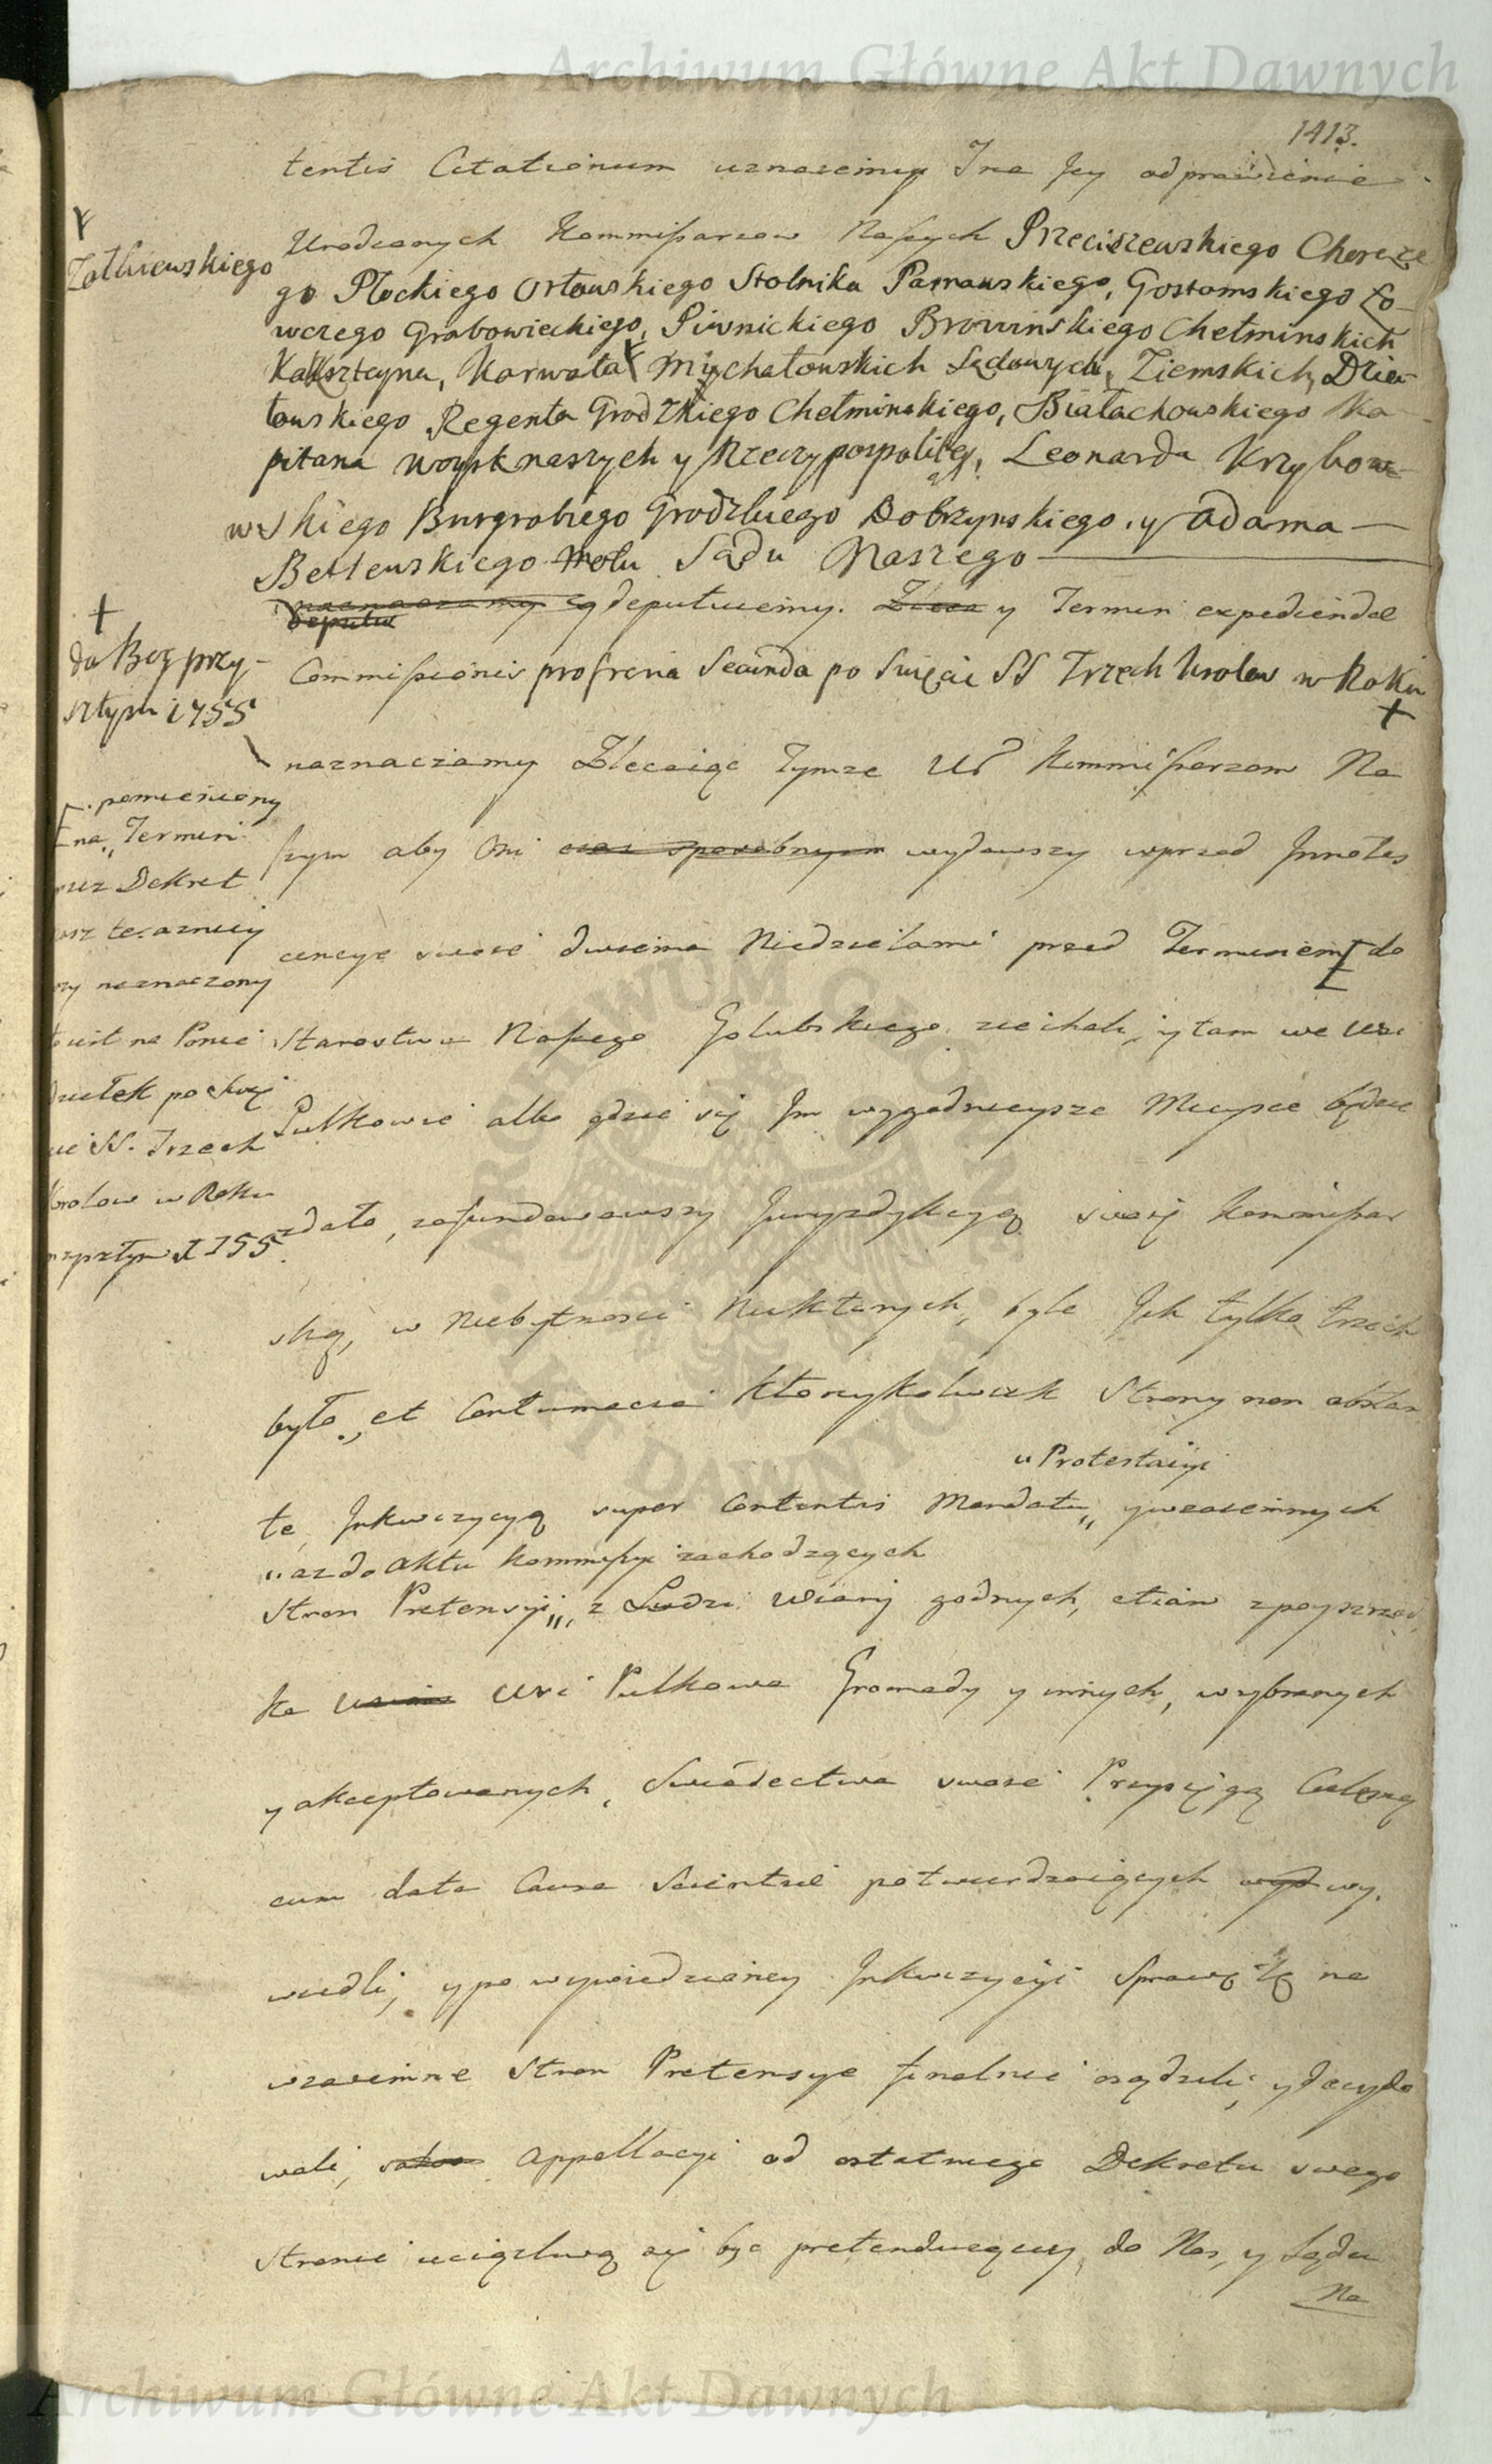 Archiwum Główne Akt Dawnych
1413.
tentis Citationum uznaiemy Ina Jey odprawienie
Urodzonych Kommissarzow Naszych Przeciszewskiego Chorąże
go Płockiego Orłowskiego Stolnika Parnawskiego, Gostomskiego Ło-
wczego Grabowieckiego, Piwnickiego Browinskiego Chełminskich
Kalkszteyna, Karwata Mychałowskich Sędowych, Ziemskich, Dzia-
łowskiego Regenta Grodzkiego Chełminskiego, Białachowskiego Ka-
pitana Woysk naszych y Rzeczypospolitey, Leonarda Krzykow-
wskiego Burgrabiego Grodzkiego Dobrzynskiego, y Adama
Betlewskiego Sądu Naszego
naznaczamy deputuiemy. y Termin expediendae
Commissionis pro freria Secunda po Swięcie SS Trzech Krolow w Roku
naznaczamy Zlecaiąc tymże Ur Kommissarzom Na
szym aby Oni czas sposobnym wydawszy wprzod Innotes
cencye swoie dwiema Niedzielami przed Terminem do
Starostwa Naszego Golubskiego ziechali, y tam we Wsi
Pulkowie albo gdzie się Im wygodnieysze Mieysce będzie
zdało, zafundowawszy Juryzdykcyą swoię Kommissar
ską, w Niebytnosci Niektorych, byle Ich tylko trzech
było, et Contumacia ktoreykolwiek Strony non obstan
u Protestacyi
te, Inkwizycyą super Contentis Mandatu,, y wzaiemnych
,, az do Aktu Kommissyi zachodzących
Stron Pretensyi,, z Ludzi Wiary godnych, etiam z posrzod
ka Wsi Pulkowa Gromady y innych, wybranych
y akceptowanych, Swiadectwa swoie Przysięgą Cielesną
cum data Causa Scientiae potwierdzaiących wy.
wiedli, y po wywiedzioney Inkwizycyi Sprawę tę na
wzaiemne Stron Pretensye finalnie osądzili, y decydo
wali, Appellacyi od ostatniego Dekretu swego
Stronie uciążliwą się być pretenduiącey, do Nas, y Sądu
Na
Zatłuiewskiego
da Bog przy-
szłym 1755
pomieniony
na,, Termin
rzez Dekret
asz teraznieyszy
naznaczony
to iest na Ponie
działek po Swię
cie SS. Trzech
Krolow w Roku
przyszłym 1755.
ARCHIWUM GŁÓWNE AKT DAWNYCH
Archiwum Główne Akt Dawnych